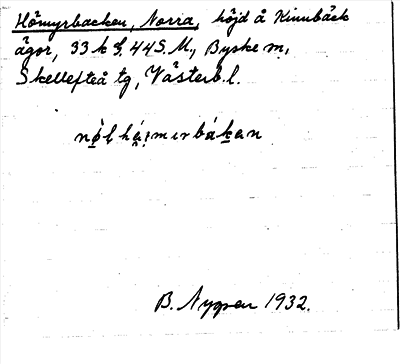 Hömyrbacken, Norra, höjd å Kinnbäck
ägor, 33 k S. 44 S. M., Byske m,
Skellefteå tg, Västerb. l.
B. Nygren 1932.